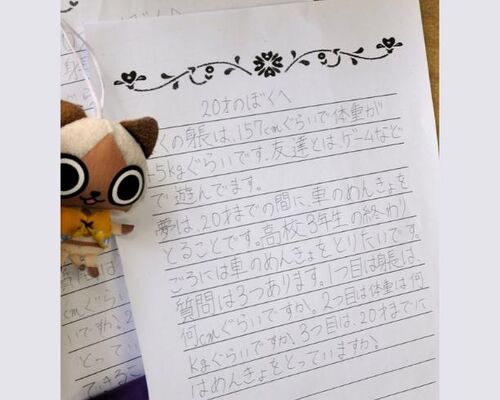 20才のぼくへ
くの身長は、157cmぐらいで体重が
5kgぐらいです。友達とは、ゲームなど
で遊んでます。
夢は、20才までの間に、車のめんきょを
とることです。高校3年生の終わり
ごろには車のめんきょをとりたいです。
質問は3つあります。1つ目は身長は、
何cmぐらいですか。2つ目は体重は何
kgぐらいですか。3つ目は、20才までに
はめんきょをとっていますか。
質問は
cmぐら
いですか。2
とってい
できるこ